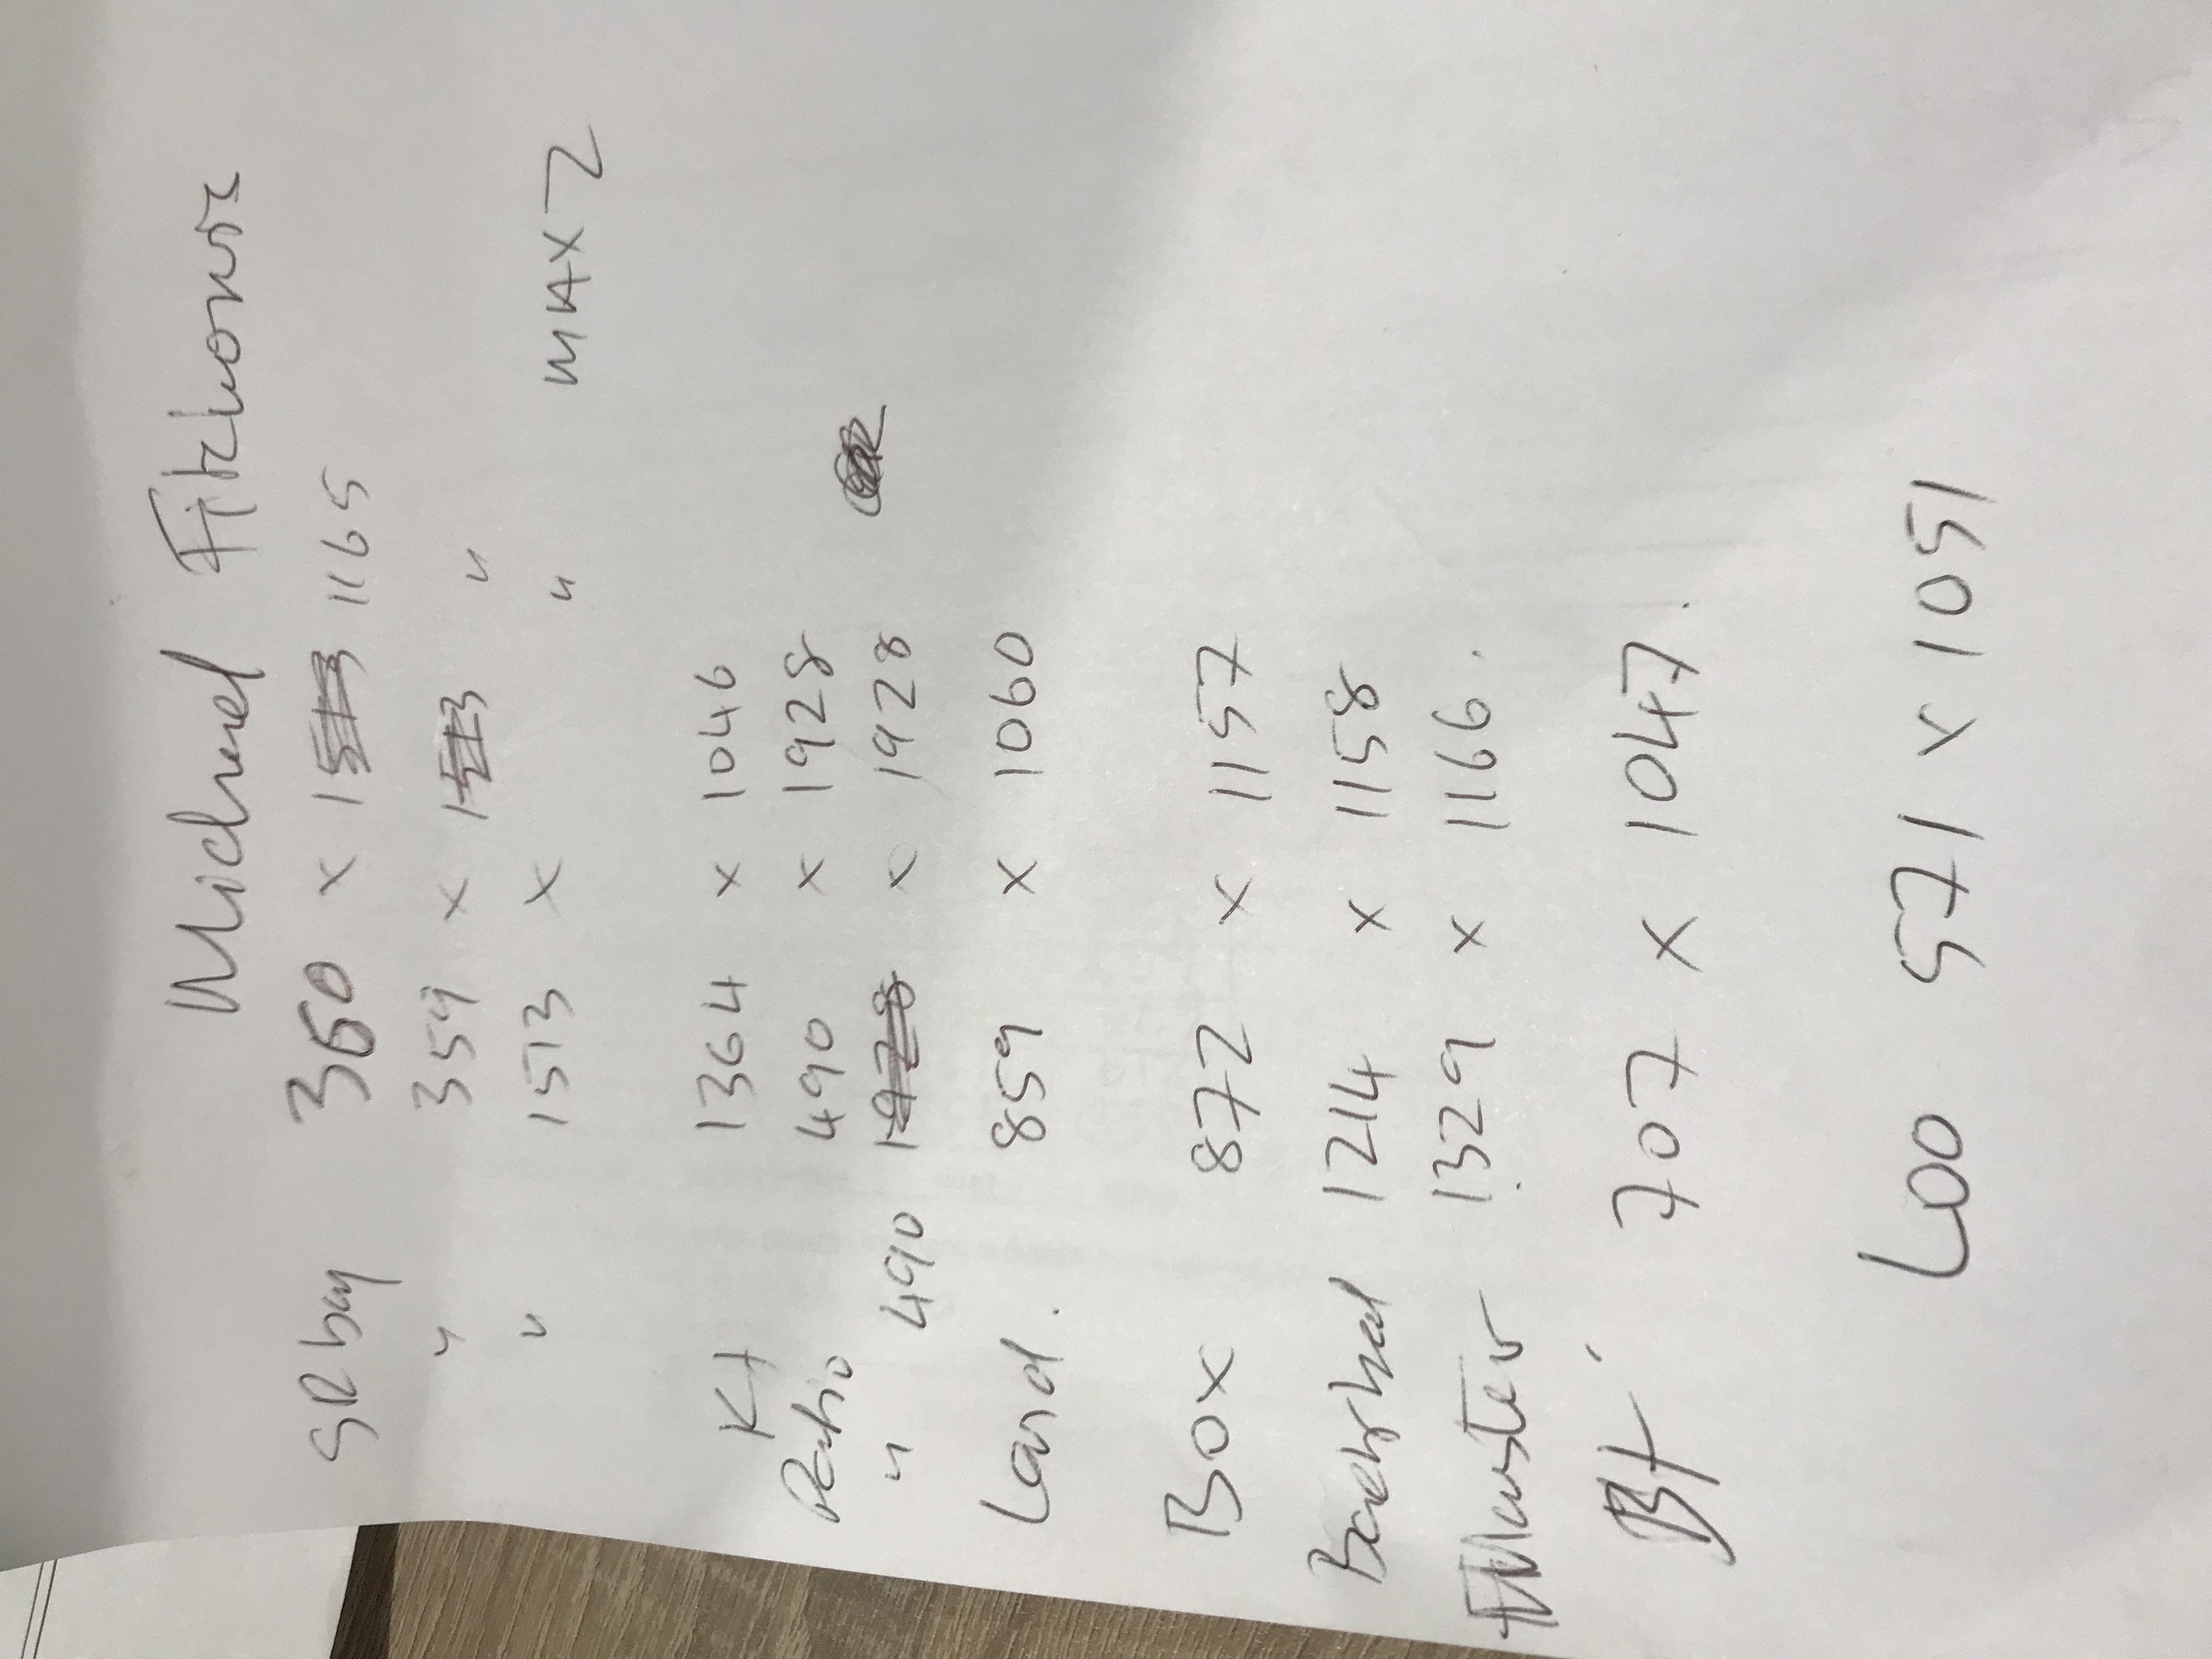 Michael
SR bay 360 x 1165
" 359 x "
" 1513 x " MAX 2
Kt 1364 x 1046
Patio 490 x 1928
" 490 x 1928
Land. 859 x 1060
Box 872 x 1157
1214 x 1158
Master 1329 x 1166.
Bt 707 x 1047.
Loo 571 x 1051